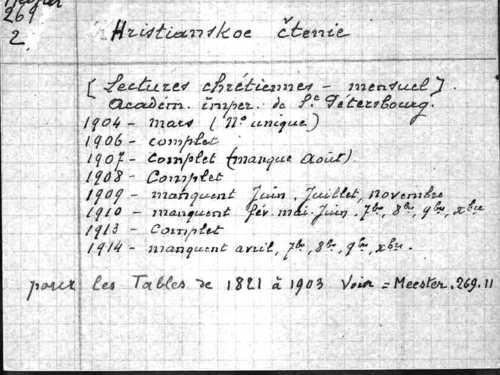 269
2.
Hristianskoe čtenie
[Lectures chrétiennes - mensuel].
Académ. imper. de St Pétersbourg.
1904 - mars (No unique)
1906 - complet
1907 - Complet (manque Août).
1908 - Complet
1909 - manquent Juin. Juillet, novembre
1910 - manquent fév. mai. Juin. 7bre, 8bre, 9bre, xbre
1913 - Complet
1914 - manquent avril, 7bre, 8bre, 9bre, xbre.
pour les Tables de 1821 à 1903 Voir = Meester. 269.11